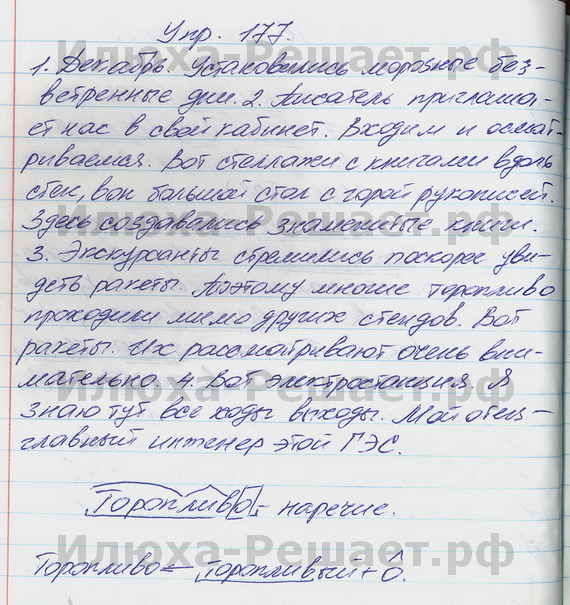 Упр. 177.
1. Декабрь. Установились морозные без-
ветренные дни. 2. Писатель приглаша-
ет нас в свой кабинет. Входим и осмат-
риваемся. Вот стеллажи с книгами вдоль
стен, вон большой стол с горой рукописей.
Здесь создавались знаменитые книги.
3. Экскурсанты стремились поскорее уви-
деть ракеты. Поэтому многие торопливо
проходили мимо других стендов. Вот
ракеты. Их рассматривают очень вни-
мательно. 4. Вот электростанция. Я
знаю тут все ходы выходы. Мой отец -
главный инженер этой ГЭС.
Торопливо - наречие.
Торопливо ← торопливый + о.
Илюха-Решает.рф
Илюха-Решает.рф
Илюха-Решает.рф
Илюха-Решает.рф
Илюха-Решает.рф
Илюха-Решает.рф